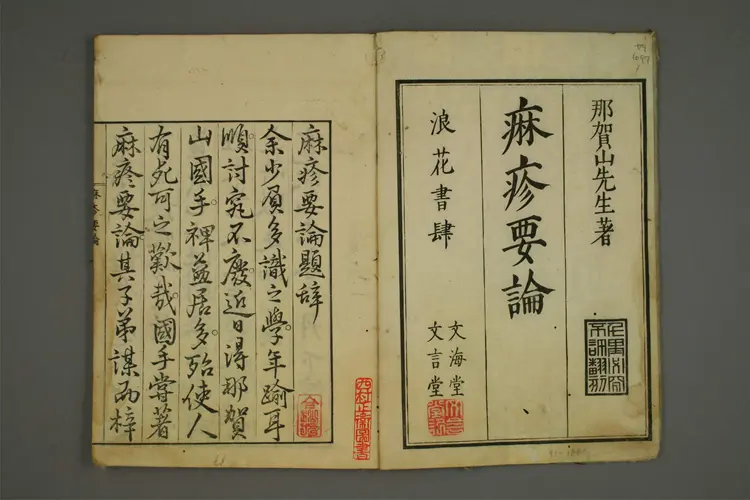 那賀山先生著
痲疹要論
浪花書肆
文海堂
文言堂
千里必究
不許翻刻
麻疹要論題辞
余少負多識之學。年踰耳
順。討究不廢。近日得那賀
山國手。裨益居多。殆使人
有死可之歎哉。國手嘗著
麻疹要論。其子弟謀而梓
麻疹要論